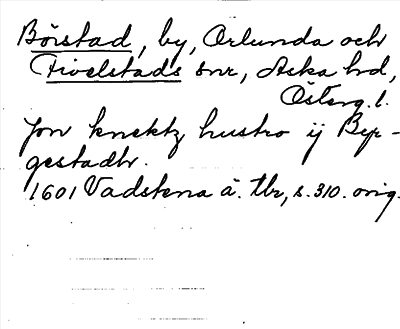 Börstad, by, Orlunda och
Fivelstads snr, Aska hd,
Österg. l.
Jon knektz hustro ij Byr-
gestadhr.
1601 Vadstena ä. tbr, s. 310. orig.